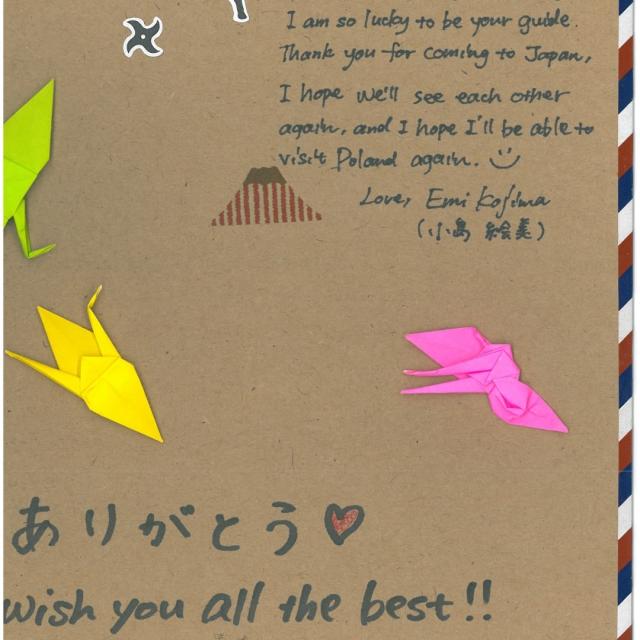 I am so lucky to be your guide.
Thank you for coming to Japan,
I hope we'll see each other
again, and I hope I'll be able to
visit Poland again.
Love, Emi Kojima
(小島 絵美)
ありがとう
wish you all the best!!